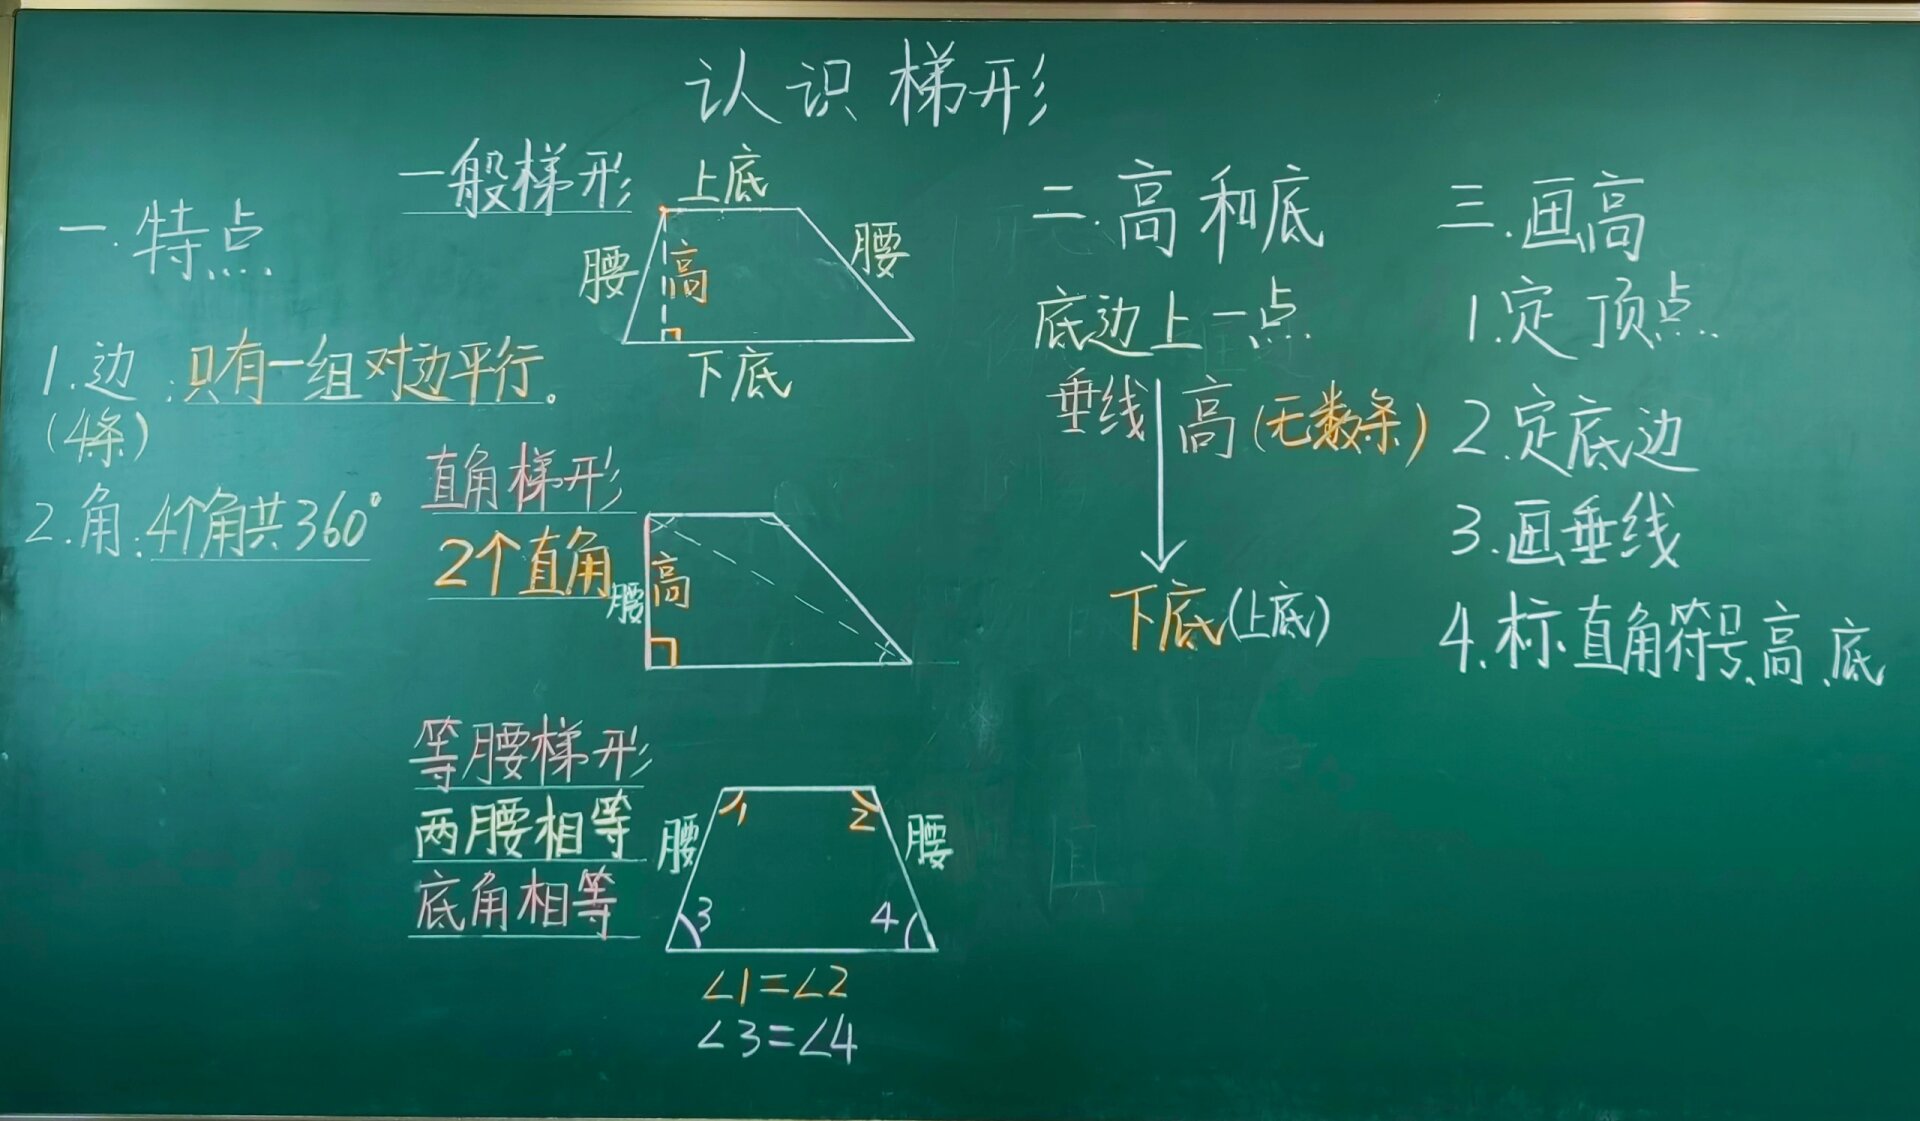 认识梯形
一.特点
1.边:只有一组对边平行。
(4条)
2.角:4个角共360°
一般梯形
上底
腰
高
腰
下底
直角梯形
2个直角
腰
高
等腰梯形
两腰相等
底角相等
腰
1
2
腰
3
4
∠1=∠2
∠3=∠4
二.高和底
底边上一点
垂线
高(无数条)
下底(上底)
三.画高
1.定顶点.
2.定底边
3.画垂线
4.标直角符号、高、底